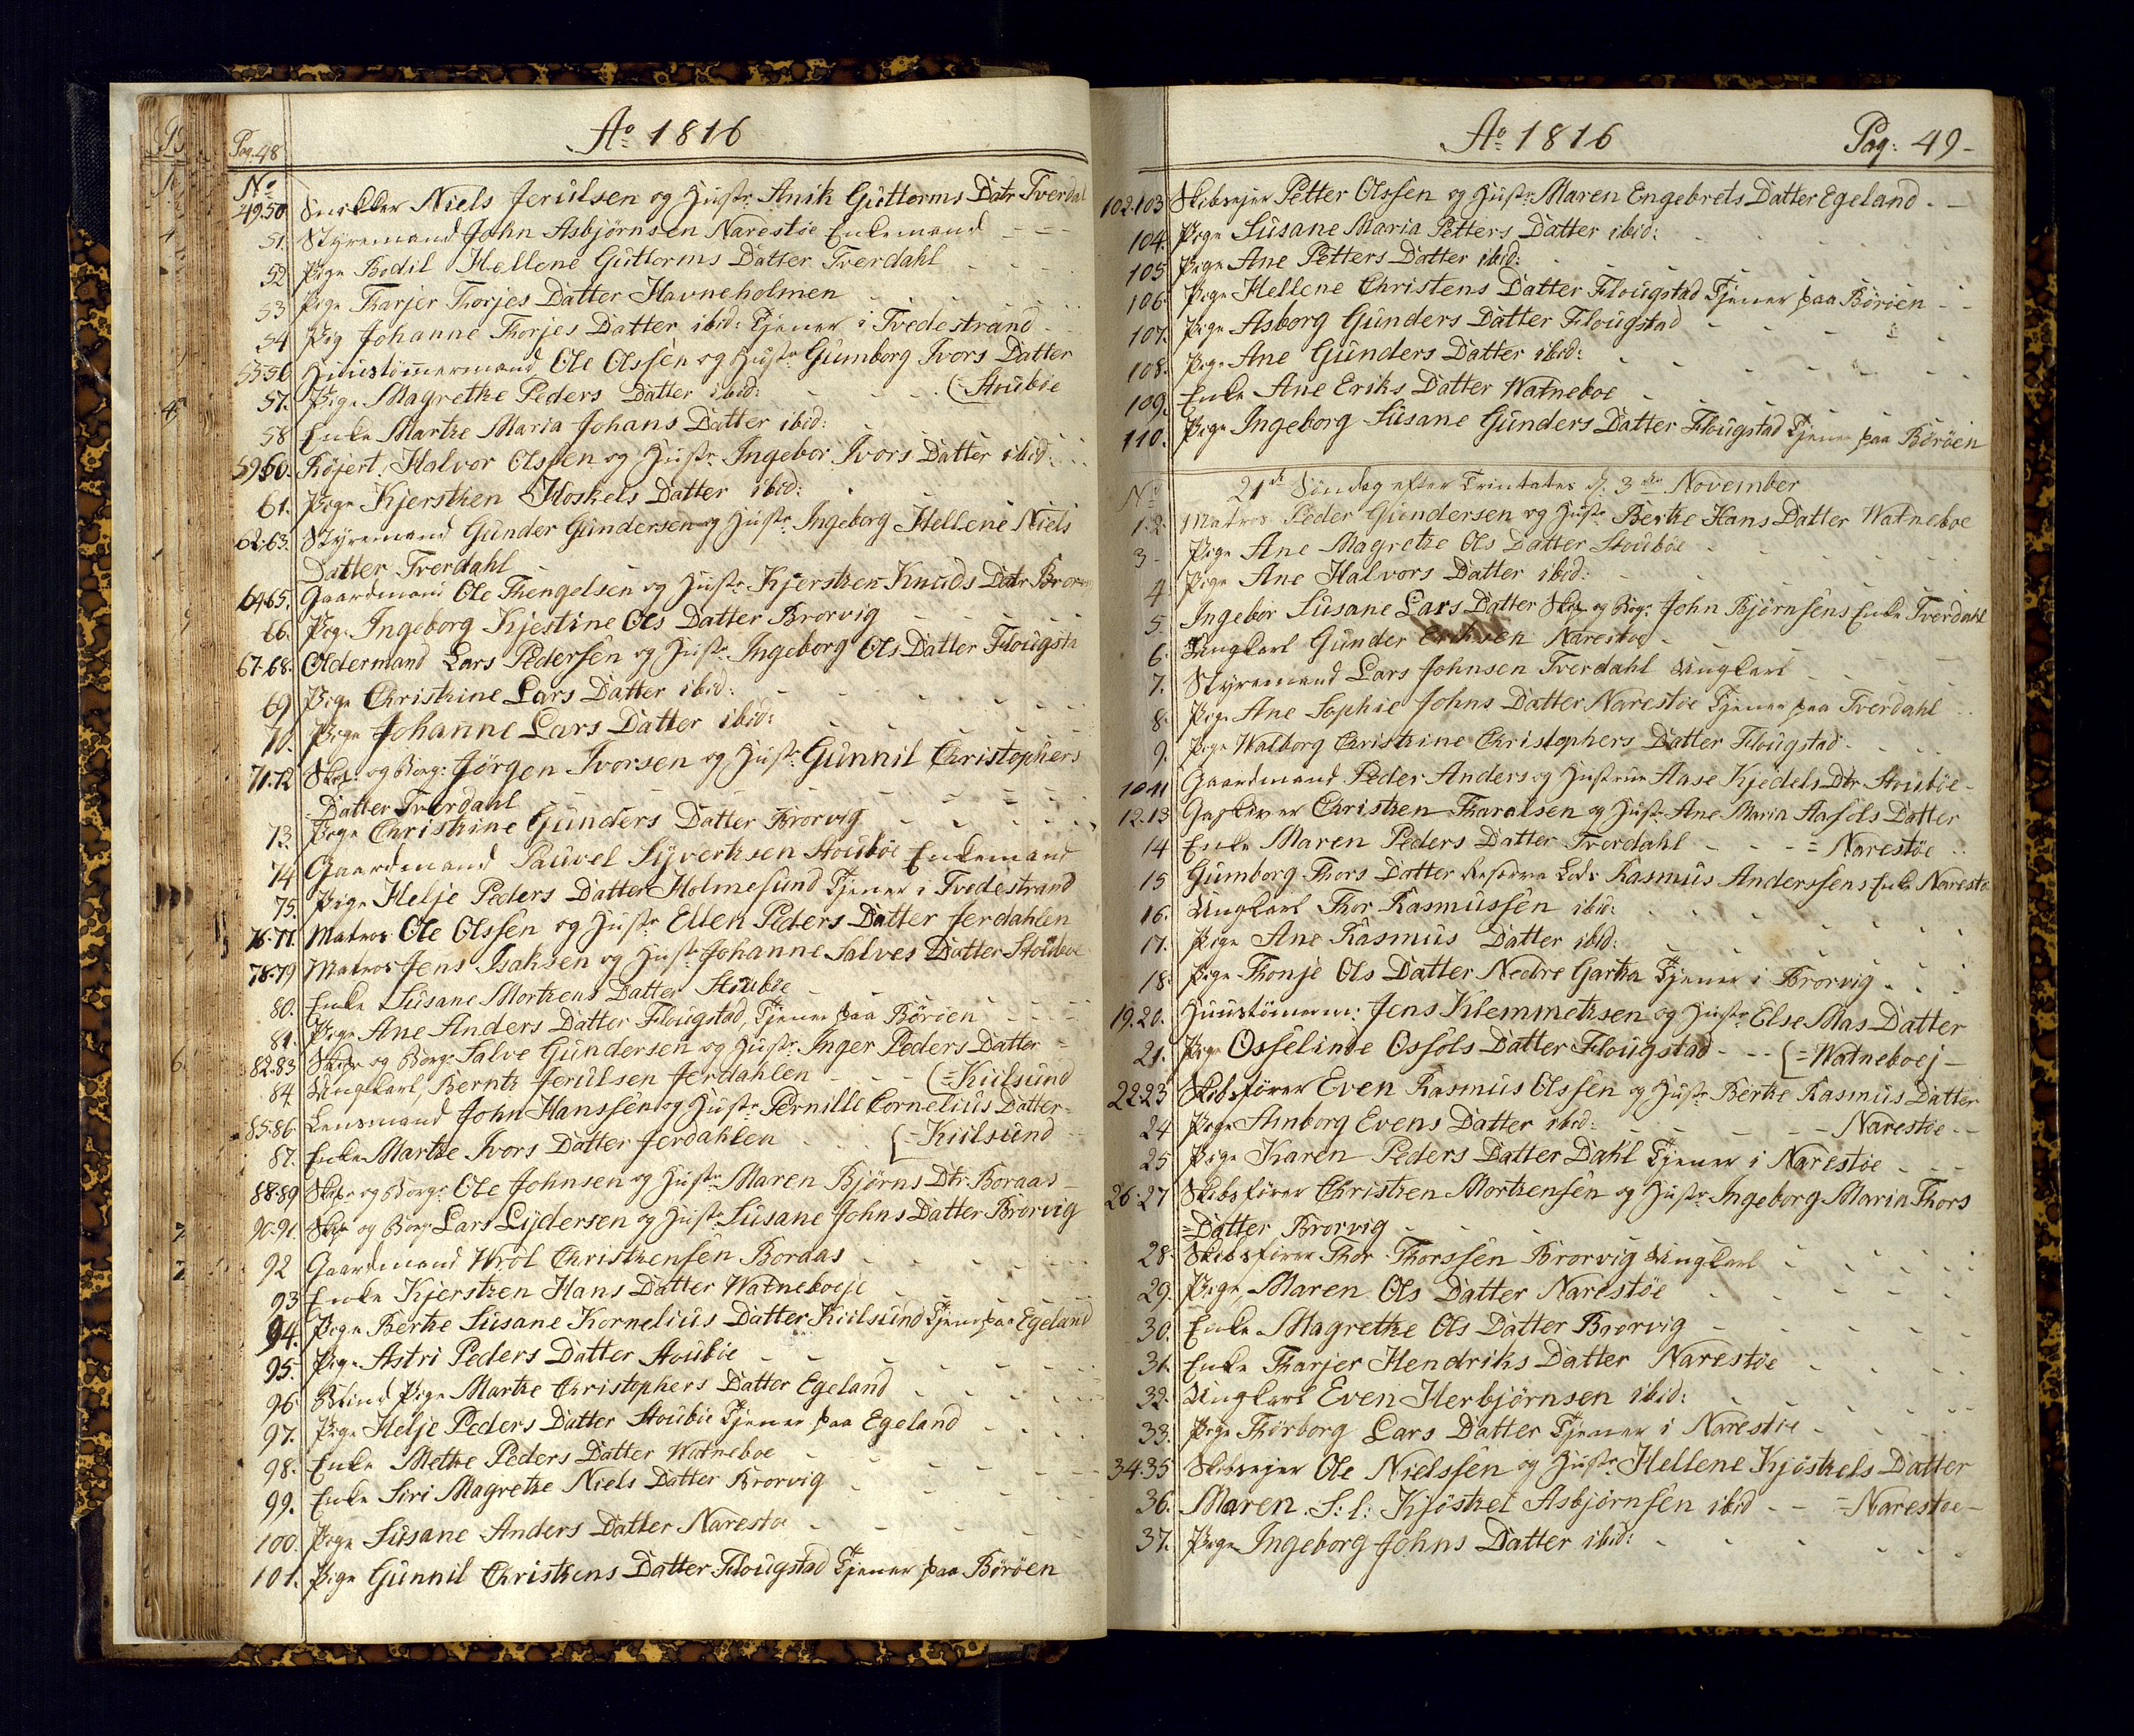 Pag. 48
Ao 1816
No
49.50. Snikker Niels Jerulsen og Hustr. Anik Guttorms Datr Tverdal
51. Styremand John Asbjørnsen Narestøe Enkemand
52 Pige Bodil Hellene Guttorms Datter Tverdahl
53 Pige Tharjer Thorjes Datter Havneholmen
54 Pig Johanne Thorjes Datter ibid: Tjener i Tvedestrand
55.56 Huustømmermand Ole Olssen og Hustr Gumborg Ivors Datter
57. Pige Magrethe Peders Datter ibid: (= Stoubøe
58 Enke Marthe Maria Johans Datter ibid:
59.60. Røjert. Halvor Olssen og Hustr. Ingebor Ivors Datter ibid:
61. Pige Kjersthen Hoskels Datter ibid:
62.63. Styremand Gunder Gundersen og Hustr. Ingeborg Hellene Niels
Datter Tverdahl
64.65. Gaardmand Ole Thengelsen og Hustr. Kjersthen Knuds Datr Brorv
66. Pige Ingeborg Kjestine Ols Datter Brorvig
67.68. Oldermand Lars Pedersen og Hustr. Ingeborg Ols Datter Flougsta
69 Pige Christhine Lars Datter ibid:
70. Pige Johanne Lars Datter ibid:
71.72 Skip: og Borg: Jørgen Ivorsen og Hustr. Gunnil Christophers
Datter Tverdahl
73. Pige Christhine Gunders Datter Brorvig
74 Gaardmand Pauvel Syverhsen Stoubøe Enkemand
75. Pige Helje Peders Datter Holmesund Tjener i Tvedestrand
76.77. Matros Ole Olssen og Hustr Ellen Peders Datter Jerdahlen
78.79 Matros Jens Isaksen og Hustr Johanne Salves Datter Stoubøe
80. Enke Susane Morthens Datter Stoubøe
81. Pige Ane Anders Datter Flougstad, Tjener paa Børøen
82.83 Skip og Borgr Salve Gundersen og Hustr. Inger Peders Datter
84 Ungkarl, Bernth Jerulsen Jerdahlen (= Kiilsund
85.86. Lensmand John Hanssen og Hustr Pernille Cornelius Datter
87. Enke Marthe Ivors Datter Jerdahlen (= Kiilsund
88.89 Skip og Borgr Ole Johnsen og Hustr Maren Bjørns Dtr Boraas
90.91. Skip og Borgr Lars Lydersen og Hustr Susane Johns Datter Brorvig
92 Gaardmand Wrol Christhensen Boraas
93 Enke Kjersthen Hans Datter Watneboeje
94. Pige Berthe Susane Kornelius Datter Kiilsund Tjener paa Egeland
95. Pige Astri Peders Datter Stoubøe
96 Blind Pige Marthe Christophers Datter Egeland
97. Pige Helje Peders Datter Stoubøe Tjener paa Egeland
98. Enke Methe Peders Datter Watneboe
99. Enke Siri Magrethe Niels Datter Brorvig
100. Pige Susane Anders Datter Narestøe
101. Pige Gunnil Christhens Datter Flougstad Tjener paa Børøen
Ao 1816 Pag: 49
102.103 Skibsejer Petter Olssen og Hustr. Maren Engebrets Datter Egeland
104. Pige Susane Maria Petters Datter ibid:
105 Pige Ane Petters Datter ibid:
106 Pige Hellene Christens Datter Flougstad Tjener paa Børøen
107. Pige Asborg Gunders Datter Flougstad
108. Pige Ane Gunders Datter ibid:
109. Enke Ane Eriks Datter Watneboe
110. Pige Ingeborg Susane Gunders Datter Flougstad Tjener paa Børøen
No 21de Søndag efter Trinitates d: 3die November
1.2. Matros Peder Gundersen og Hustr Berthe Hans Datter Watneboe
3 Pige Ane Magrethe Ols Datter Stoubøe
4 Pige Ane Halvors Datter ibid:
5. Ingebor Susane Lars Datter Skip og Borgr. John Bjørnsens Enke Tverdahl
6. Ungkarl Gunder Erichsen Narestøe
7. Styremand Lars Johnsen Tverdahl Ungkarl
8. Pige Ane Sophie Johns Datter Narestøe Tjener paa Tverdahl
9. Pige Walborg Christhine Christophers Datter Flougstad
10.11 Gaardmand Peder Anders og Hustrue Aase Kjedels Dtr Stoubøe
12.13 Christhen Tharalsen og Hustr Ane Maria Aasols Datter
14 Enke Maren Peders Datter Tverdahl = Narestøe
15 Gumborg Thors Datter Rasmus Anderssens Enke Narestø
16. Ungkarl Thor Rasmussen ibid:
17. Pige Ane Rasmus Datter ibid:
18. Pige Thonje Ols Datter Nedre Gartha Tjener i Brorvig
19.20. Huustømmerm: Jens Klemmethsen og Hustr Else Mas Datter
21. Pige Osselinde Ossols Datter Flougstad (= Watneboej
22.23 Skibsfører Even Rasmus Olssen og Hustr Berthe Rasmus Datter
24 Pige Amborg Evens Datter ibid: Narestøe
25 Pige Karen Peders Datter Dahl Tjener i Narestøe
26.27 Skibsfører Christhen Morthensen og Hustr Ingeborg Maria Thors
=Datter Brorvig
28. Skibsfører Thor Thorssen Brorvig Ungkarl
29. Pige Maren Ols Datter Narestøe
30. Enke Magrethe Ols Datter Brorvig
31. Enke Tharjer Hendriks Datter Narestøe
32. Ungkarl Even Herbjørnsen ibid:
33. Pige Thørborg Lars Datter Tjener i Narestøe
34.35 Skibsejer Ole Nielssen og Hustr. Hellene Kjøsthels Datter
36. Maren S: l: Kjøsthel Asbjørnsen ibid = Narestøe
37. Pige Ingeborg Johns Datter ibid: